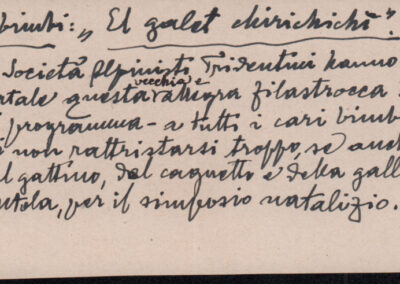 bimbi: „ El galet chirichichì ".
Società Alpinisti Tridentini hanno
vecchia e
rtale questa allegra filastrocca
programma - a tutti i cari bimb
i non rattristarsi troppo, se anch
l gattino, del cagnetto e della gall
ntola, per il simposio natalizio.